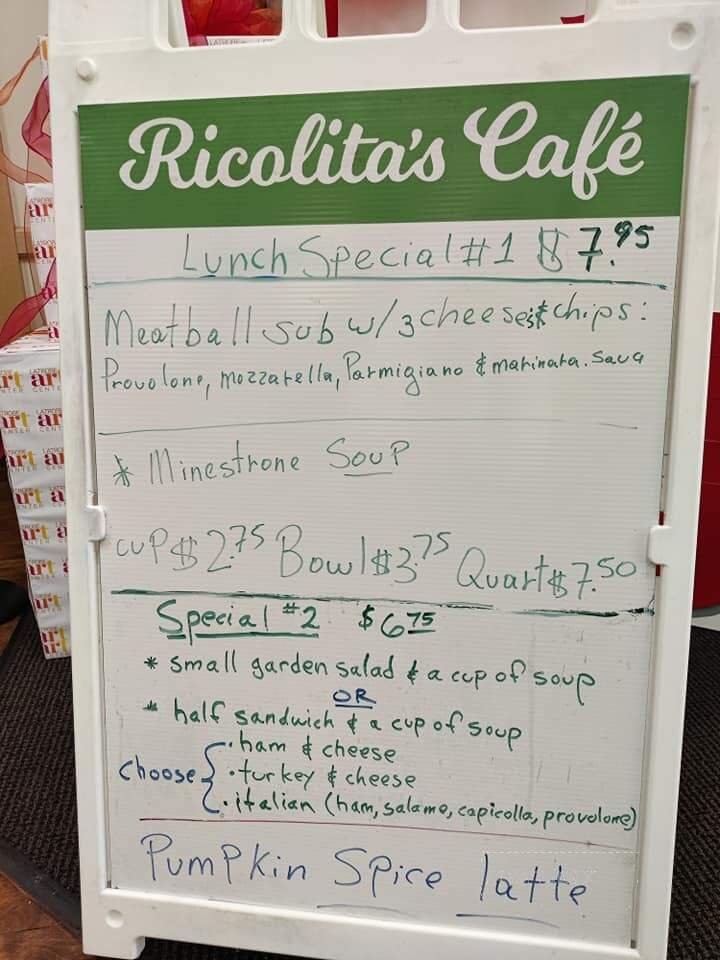 Ricolita's Café
Lunch Special #1 $7.95
Meatball sub w/ 3 cheeses & chips:
Provolone, mozzarella, Parmigiano & marinara. Sauce
* Minestrone Soup
cup $2.75 Bowl $3.75 Quart $7.50
Special #2 $6.75
* small garden salad & a cup of soup
OR
* half sandwich & a cup of soup
choose { • ham & cheese
• turkey & cheese
• italian (ham, salame, capicolla, provolone)
Pumpkin Spice latte
LATROBE
art
CENTER